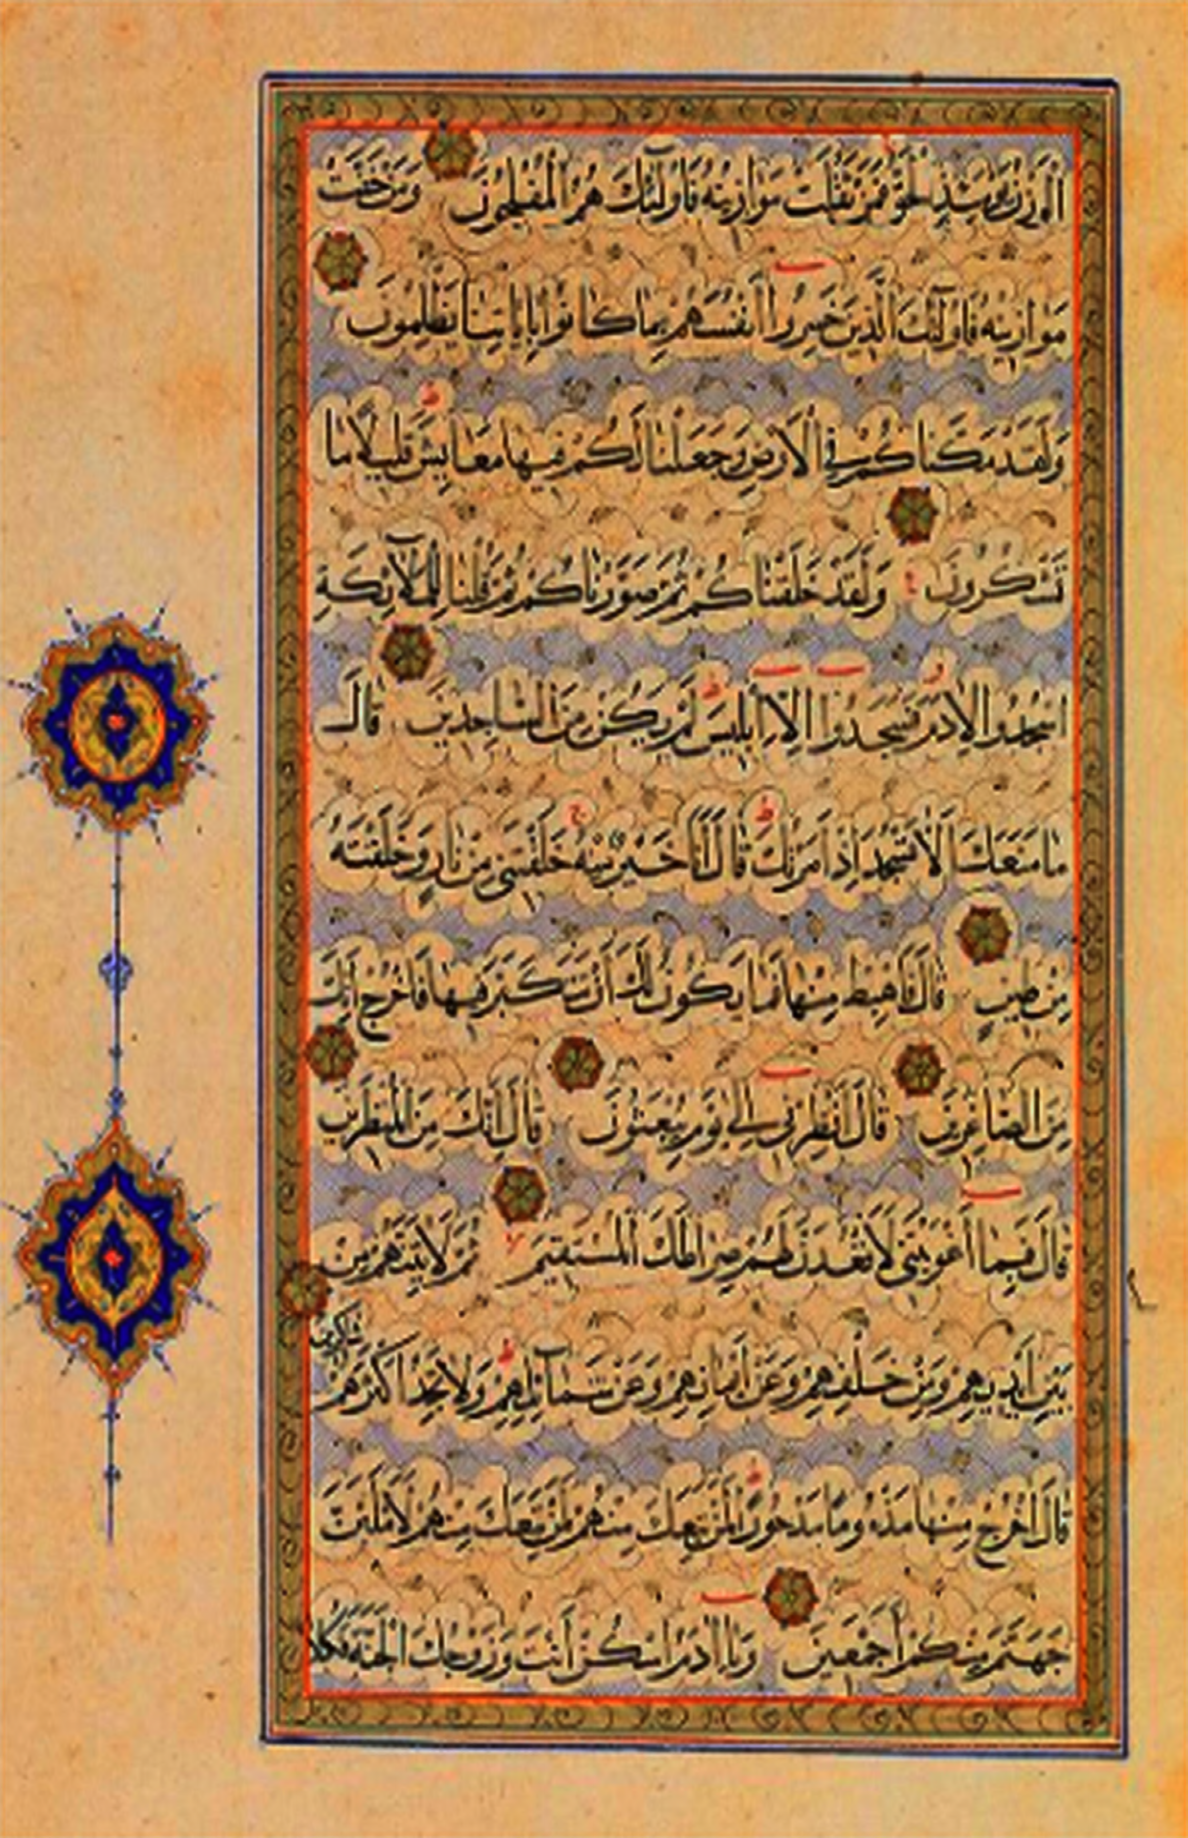 الوزن يومئذ الحق فمن ثقلت موازينه فاولئك هم المفلحون ومن خفت
موازينه فاولئك الذين خسروا انفسهم بما كانوا باياتنا يظلمون
ولقد مكناكم في الارض وجعلنا لكم فيها معايش قليلا ما
تشكرون ولقد خلقناكم ثم صورناكم ثم قلنا للملائكة
اسجدوا لادم فسجدوا الا ابليس لم يكن من الساجدين قال
ما منعك الا تسجد اذ امرتك قال انا خير منه خلقتني من نار وخلقته
من طين قال فاهبط منها فما يكون لك ان تتكبر فيها فاخرج انك
من الصاغرين قال انظرني الى يوم يبعثون قال انك من المنظرين
قال فبما اغويتني لاقعدن لهم صراطك المستقيم ثم لاتينهم من
بين ايديهم ومن خلفهم وعن ايمانهم وعن شمائلهم ولا تجد اكثرهم شاكرين
قال اخرج منها مذؤما مدحورا لمن تبعك منهم لاملئن
جهنم منكم اجمعين ويا ادم اسكن انت وزوجك الجنة فكلا